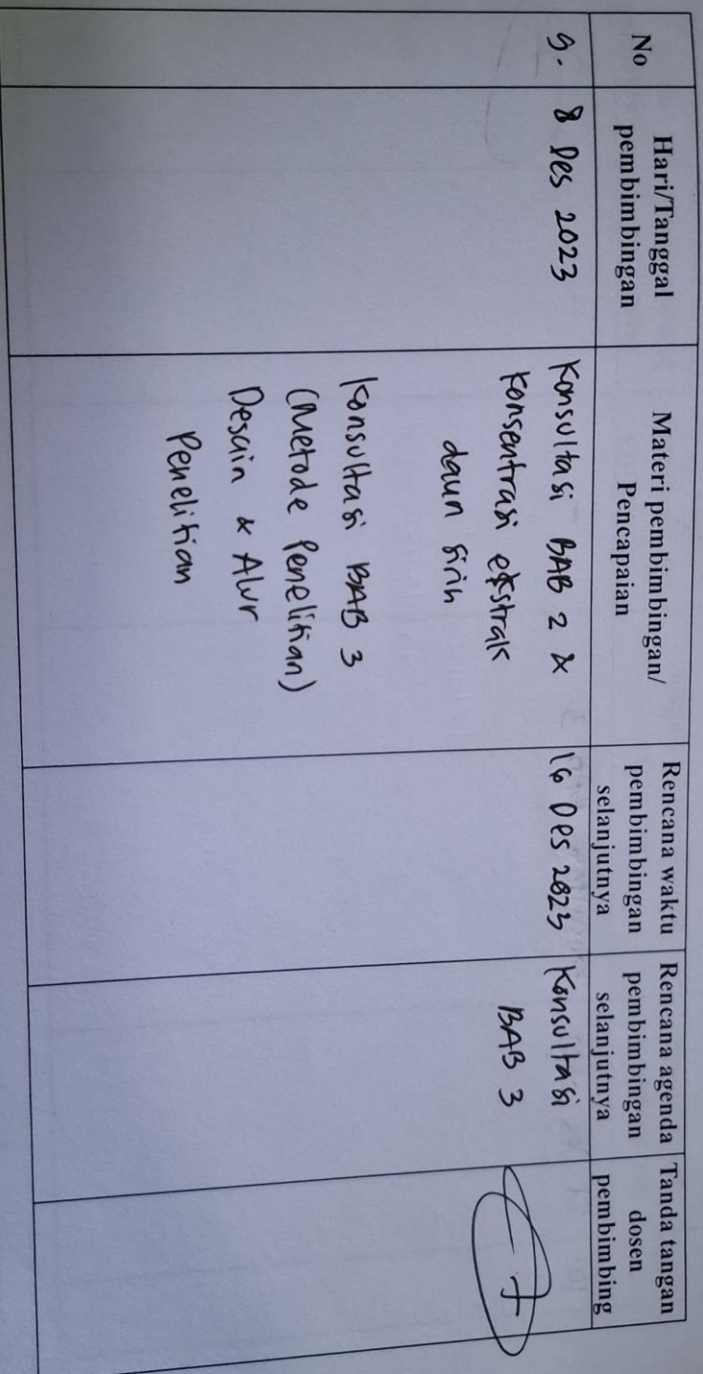 No
Hari/Tanggal
pembimbingan
Materi pembimbingan/
Pencapaian
Rencana waktu
pembimbingan
selanjutnya
Rencana agenda
pembimbingan
selanjutnya
Tanda tangan
dosen
pembimbing
9.
8 Des 2023
Konsultasi BAB 2 &
Konsentrasi ekstrak
daun sirih
Konsultasi BAB 3
(Metode Penelitian)
Desain & Alur
Penelitian
16 Des 2023
Konsultasi
BAB 3